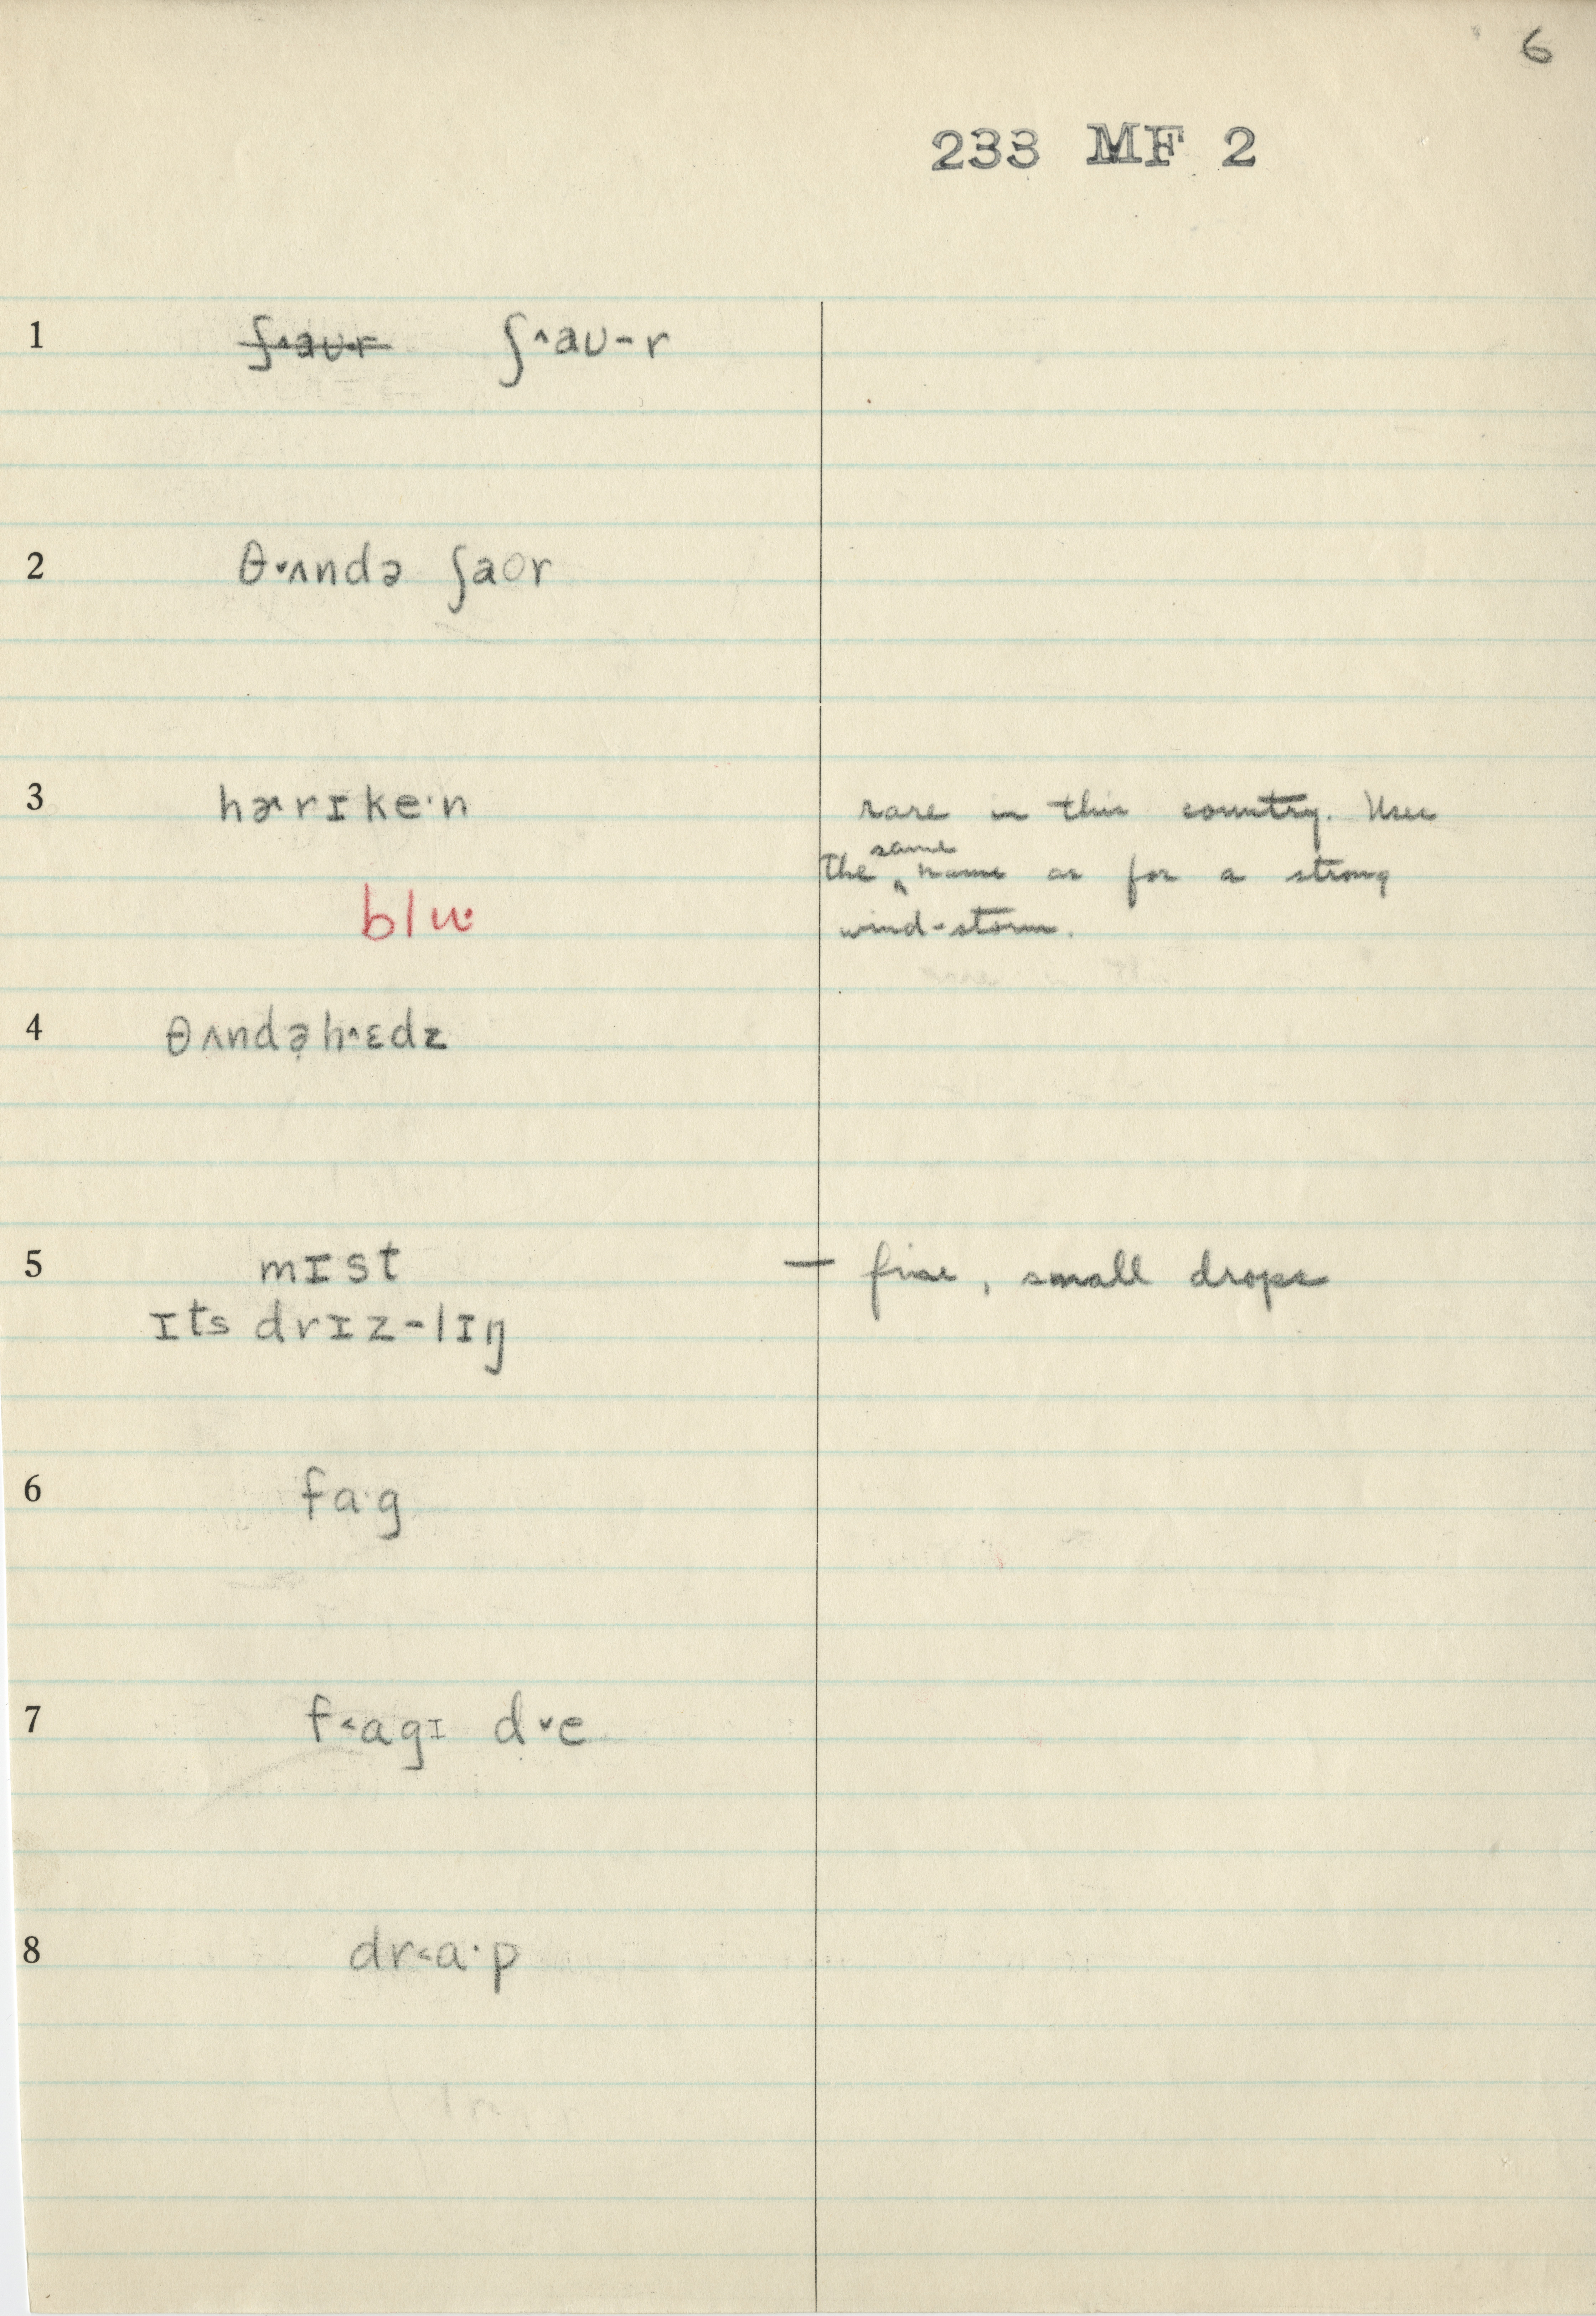 6
233 MF 2
1 ʃ˄aʊr ʃ˄aʊ-r
2 θ˅ʌndə ʃaʊr
3 hɚrɪke·n rare in this country. Uses
the same name as for a strong
blu· wind-storm.
4 θʌndəh˄ɛdz
5 mɪst — fine, small drops
ɪts drɪz-lɪŋ
6 fa·g
7 f˂agɪ d˅e
8 dr˂a·p